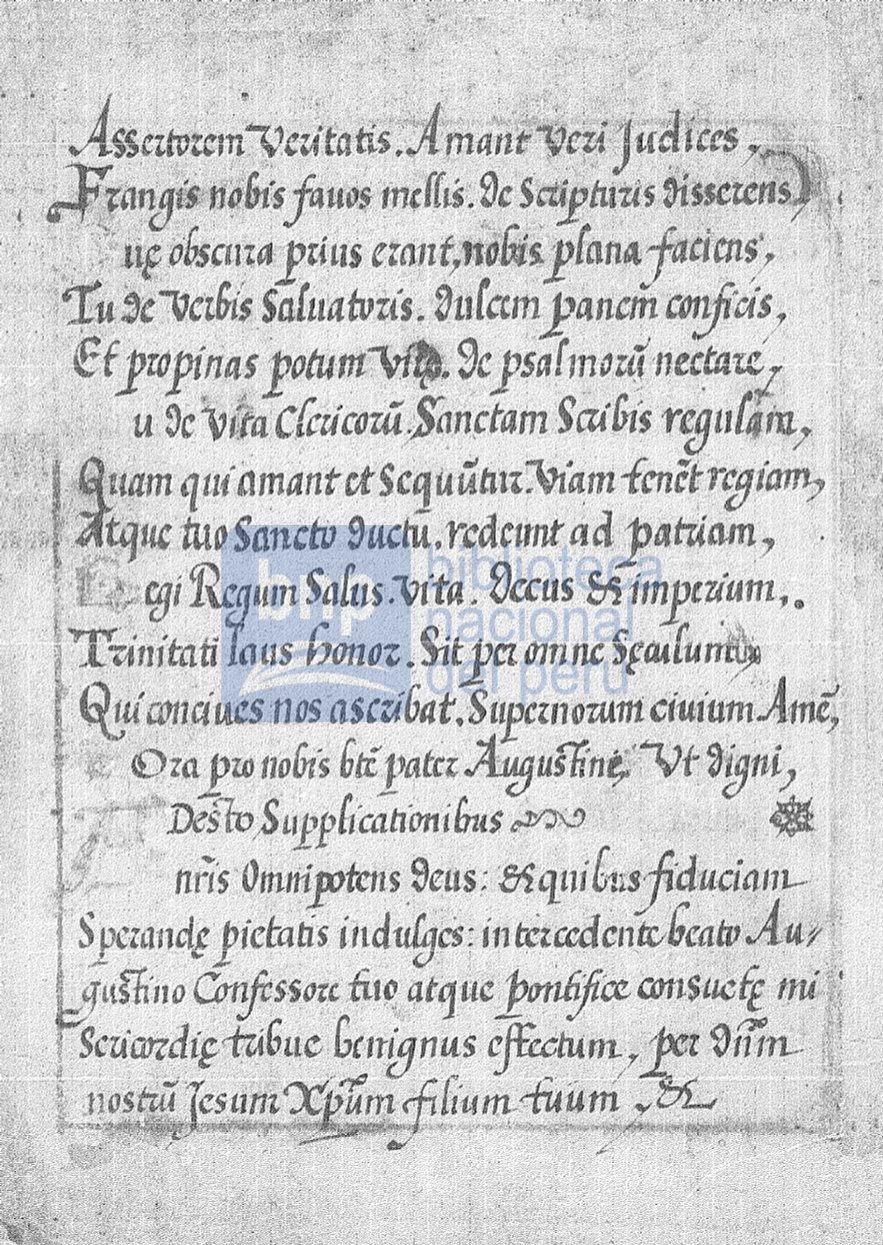 Assertorem Veritatis. Amant Veri Judices,
Frangis nobis fauos mellis. de Scripturis disserens,
uę obscura prius erant, nobis plana faciens,
Tu de Verbis Saluatoris. dulcem panem conficis,
Et propinas potum Vitę. de psalmorū nectare,
u de Vita Clericorū. Sanctam Scribis regulam,
Quam qui amant et Sequūtur. Viam tenēt regiam,
Atque tuo Sancto ductu. redeunt ad patriam,
egi Regum Salus. Vita. Decus & imperium,.
Trinitati laus honor. Sit per omne Sęculum
Qui conciues nos ascribat. Supernorum ciuium Amē,
Ora pro nobis btē pater Augustine, Vt digni,
Desto Supplicationibus
nr̄is Omnipotens deus: & quibus fiduciam
Sperandę pietatis indulges: intercedente beato Au-
gustino Confessore tuo atque pontifice consuetę mi
Sericordię tribue benignus effectum, per dn̄m
nostrū Jesum Xp̄um filium tuum, &
bnp biblioteca
nacional
del perú